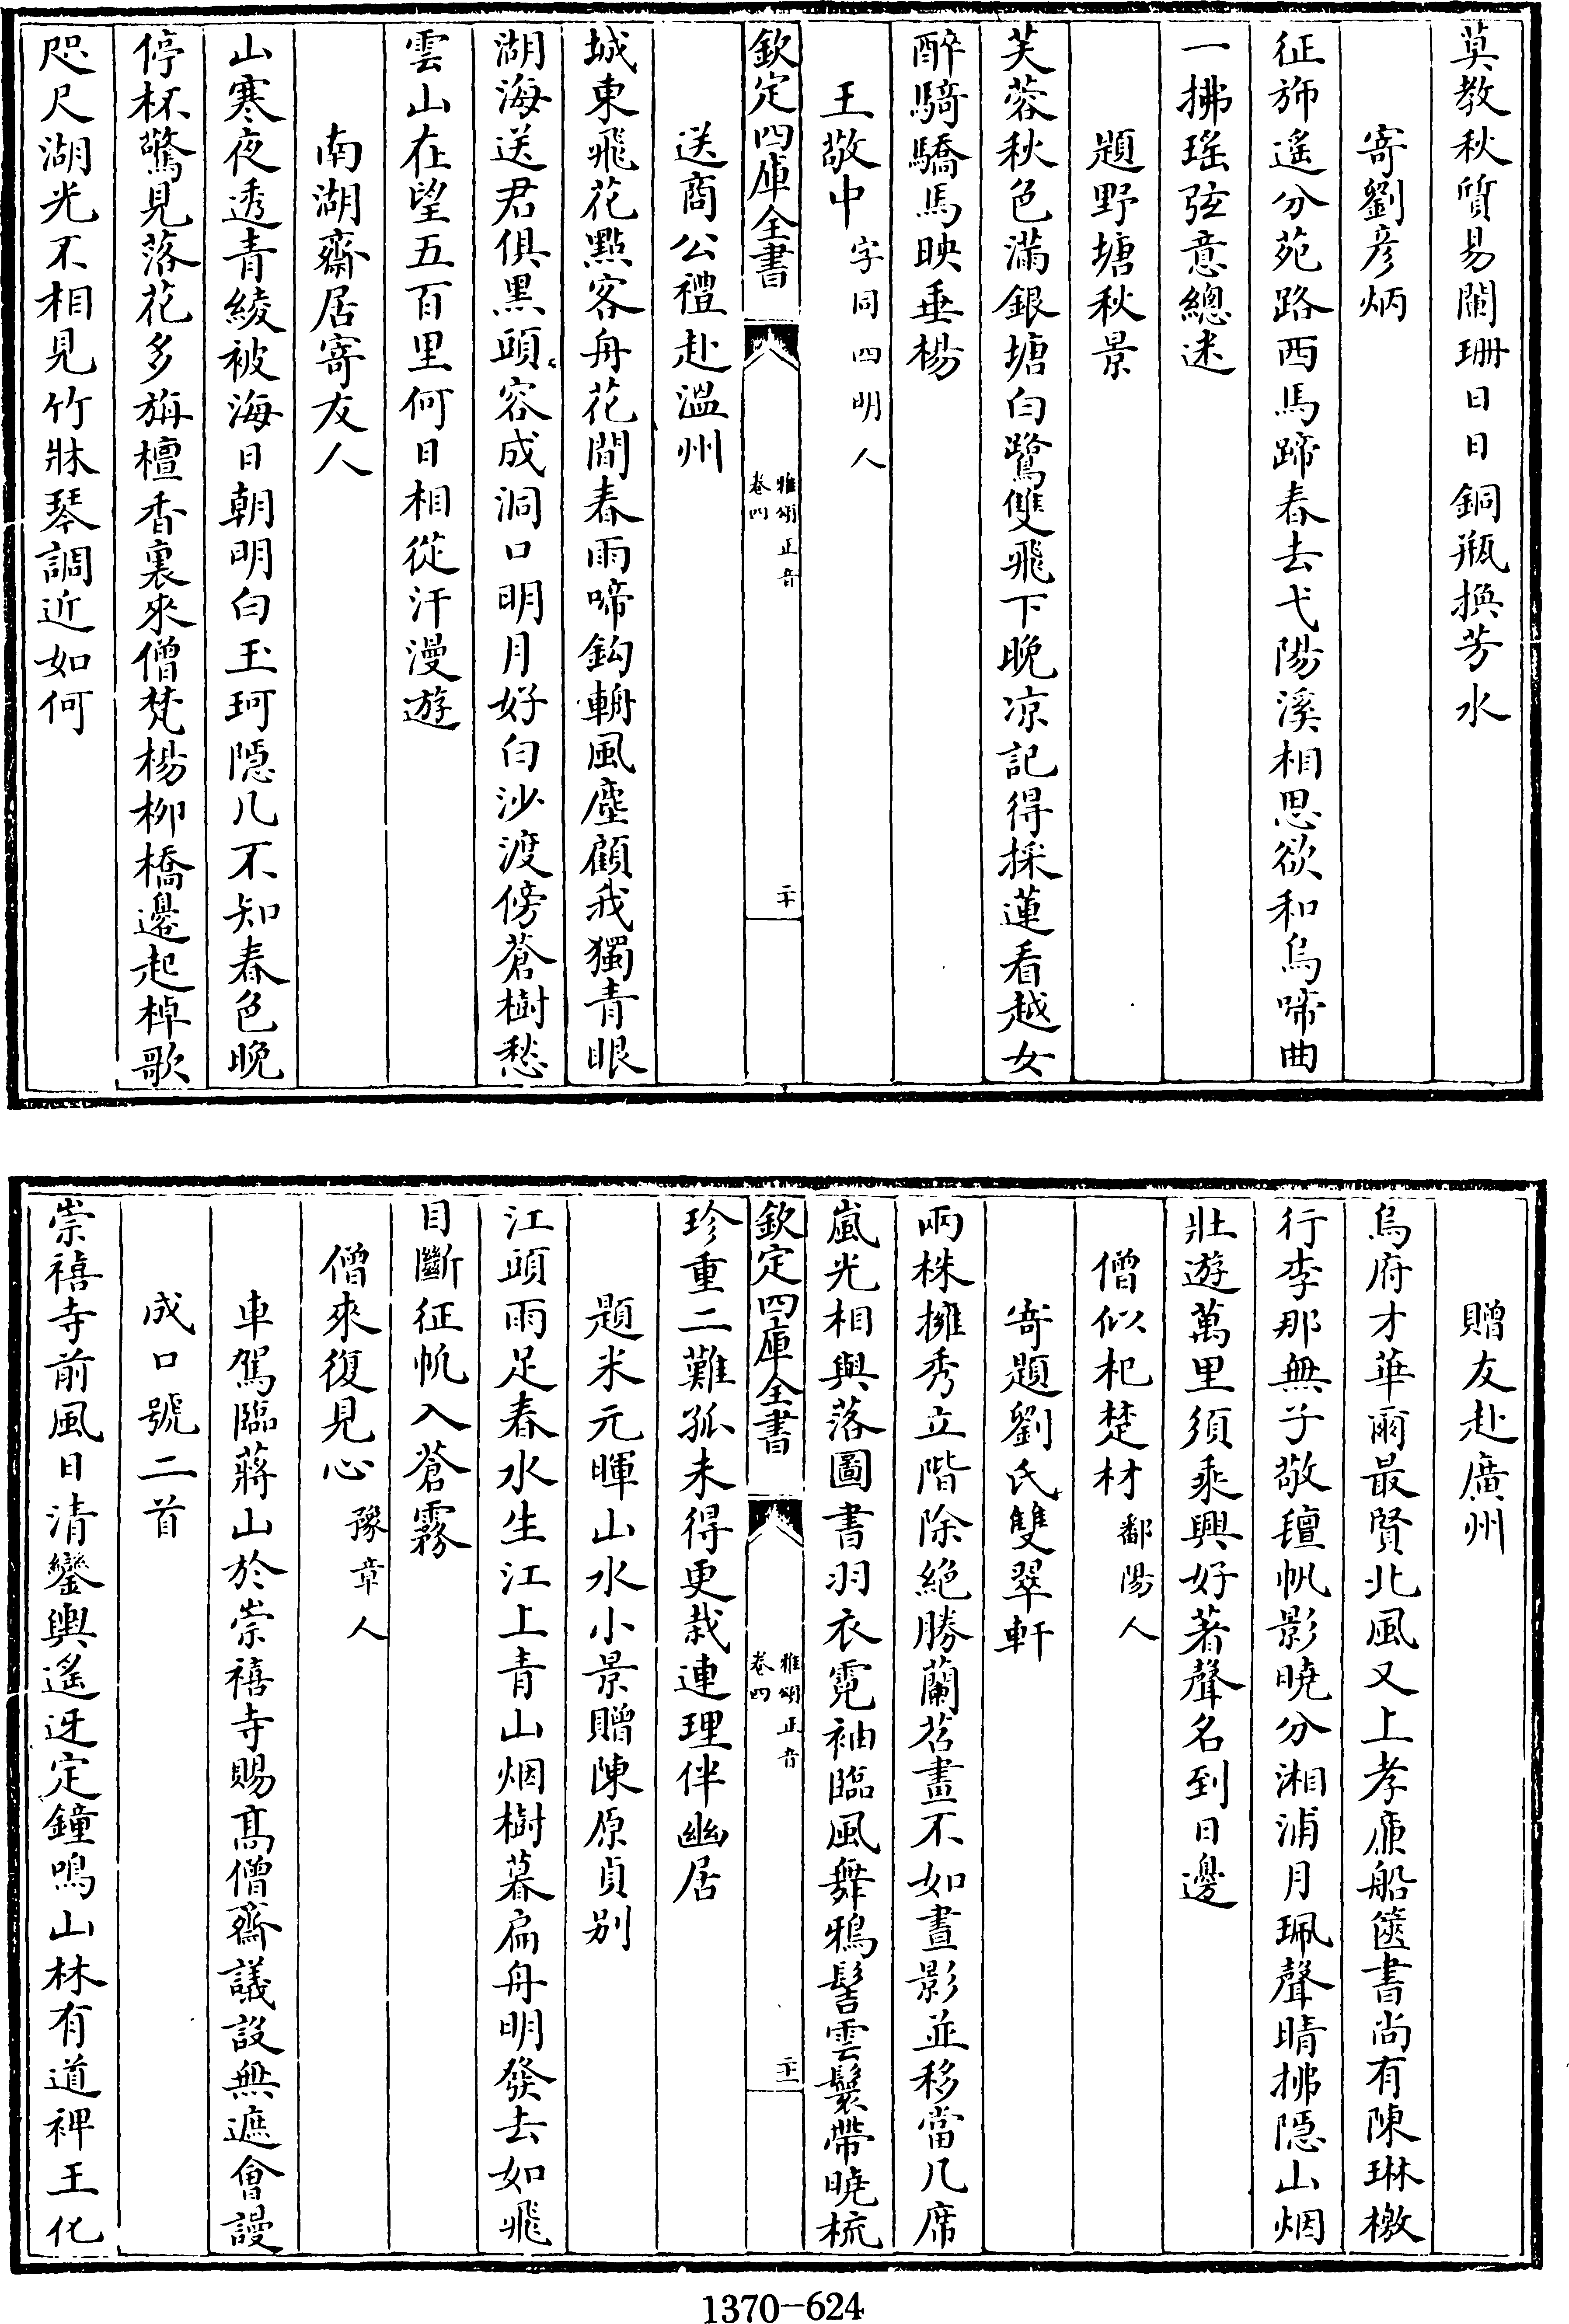 莫教秋質易闌珊日日銅瓶換芳水
寄劉彥炳
征斾遙分苑路西馬蹄春去弋陽溪相思欲和烏啼曲
一拂瑤弦意總迷
題野塘秋景
芙蓉秋色滿銀塘白鷺雙飛下晚凉記得採蓮看越女
醉騎驕馬映垂楊
王敬中 字同四明人
送商公禮赴溫州
欽定四庫全書
雅頌正音
卷四
二十
城東飛花點客舟花間春雨啼鈎輈風塵顧我獨青眼
湖海送君俱黑頭容成洞口明月好白沙渡傍蒼樹愁
雲山在望五百里何日相從汗漫遊
南湖齋居寄友人
山寒夜透青綾被海日朝明白玉珂隱几不知春色晚
停杯驚見落花多旃檀香裏來僧梵楊柳橋邊起棹歌
咫尺湖光不相見竹牀琴調近如何
贈友赴廣州
烏府才華爾最賢北風又上孝廉船篋書尚有陳琳檄
行李那無子敬氊帆影曉分湘浦月珮聲晴拂隱山烟
壯遊萬里須乘興好著聲名到日邊
僧似杞楚材 鄱陽人
寄題劉氏雙翠軒
兩株擁秀立階除絕勝蘭苕畫不如晝影並移當几席
嵐光相與落圖書羽衣霓袖臨風舞鴉髻雲鬟帶曉梳
欽定四庫全書
雅頌正音
卷四
二十一
珍重二難孤未得更栽連理伴幽居
題米元暉山水小景贈陳原貞别
江頭雨足春水生江上青山烟樹暮扁舟明發去如飛
目斷征帆入蒼霧
僧來復見心 豫章人
車駕臨蔣山於崇禧寺賜髙僧齋議設無遮會謾
成口號二首
崇禧寺前風日清鑾輿遙迓定鐘鳴山林有道裨王化
1370—624